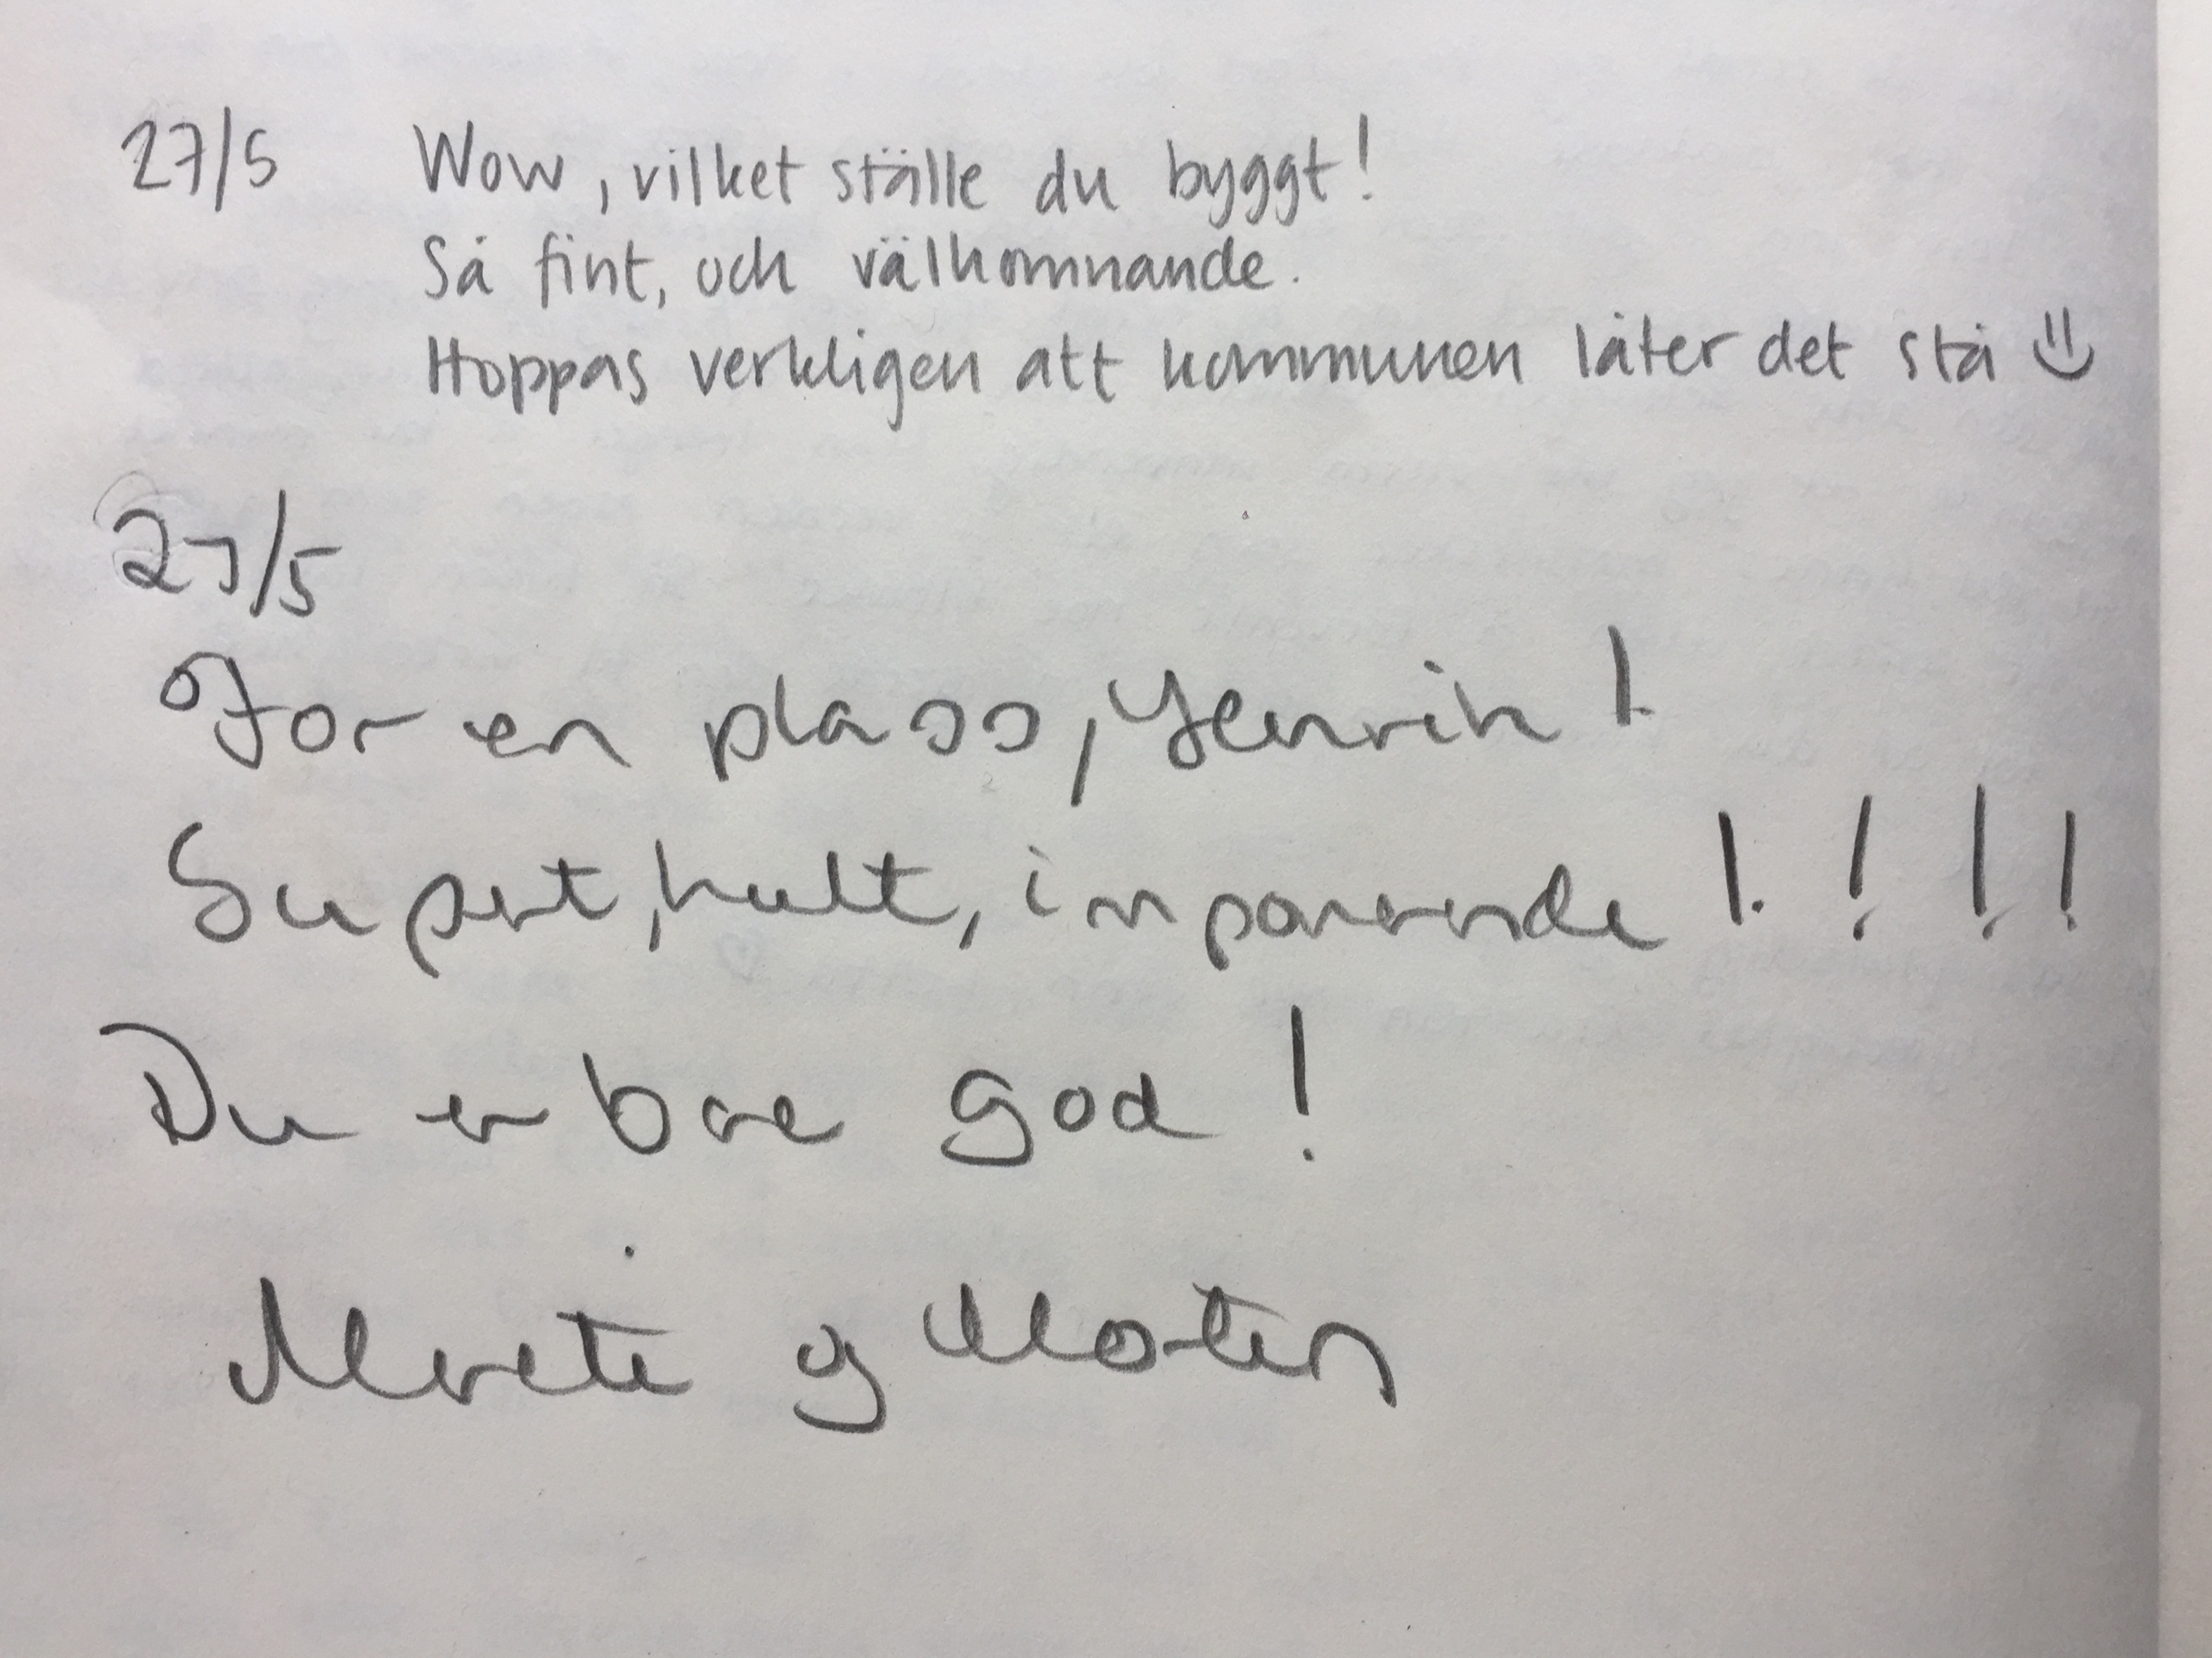 27/5 Wow, vilket ställe du byggt!
Så fint, och välkomnande.
Hoppas verkligen att kommunen låter det stå
27/5
For en plass, Henrik!
Supert, kult, imponerende!!!!
Du er bare god!
Merete og Morten